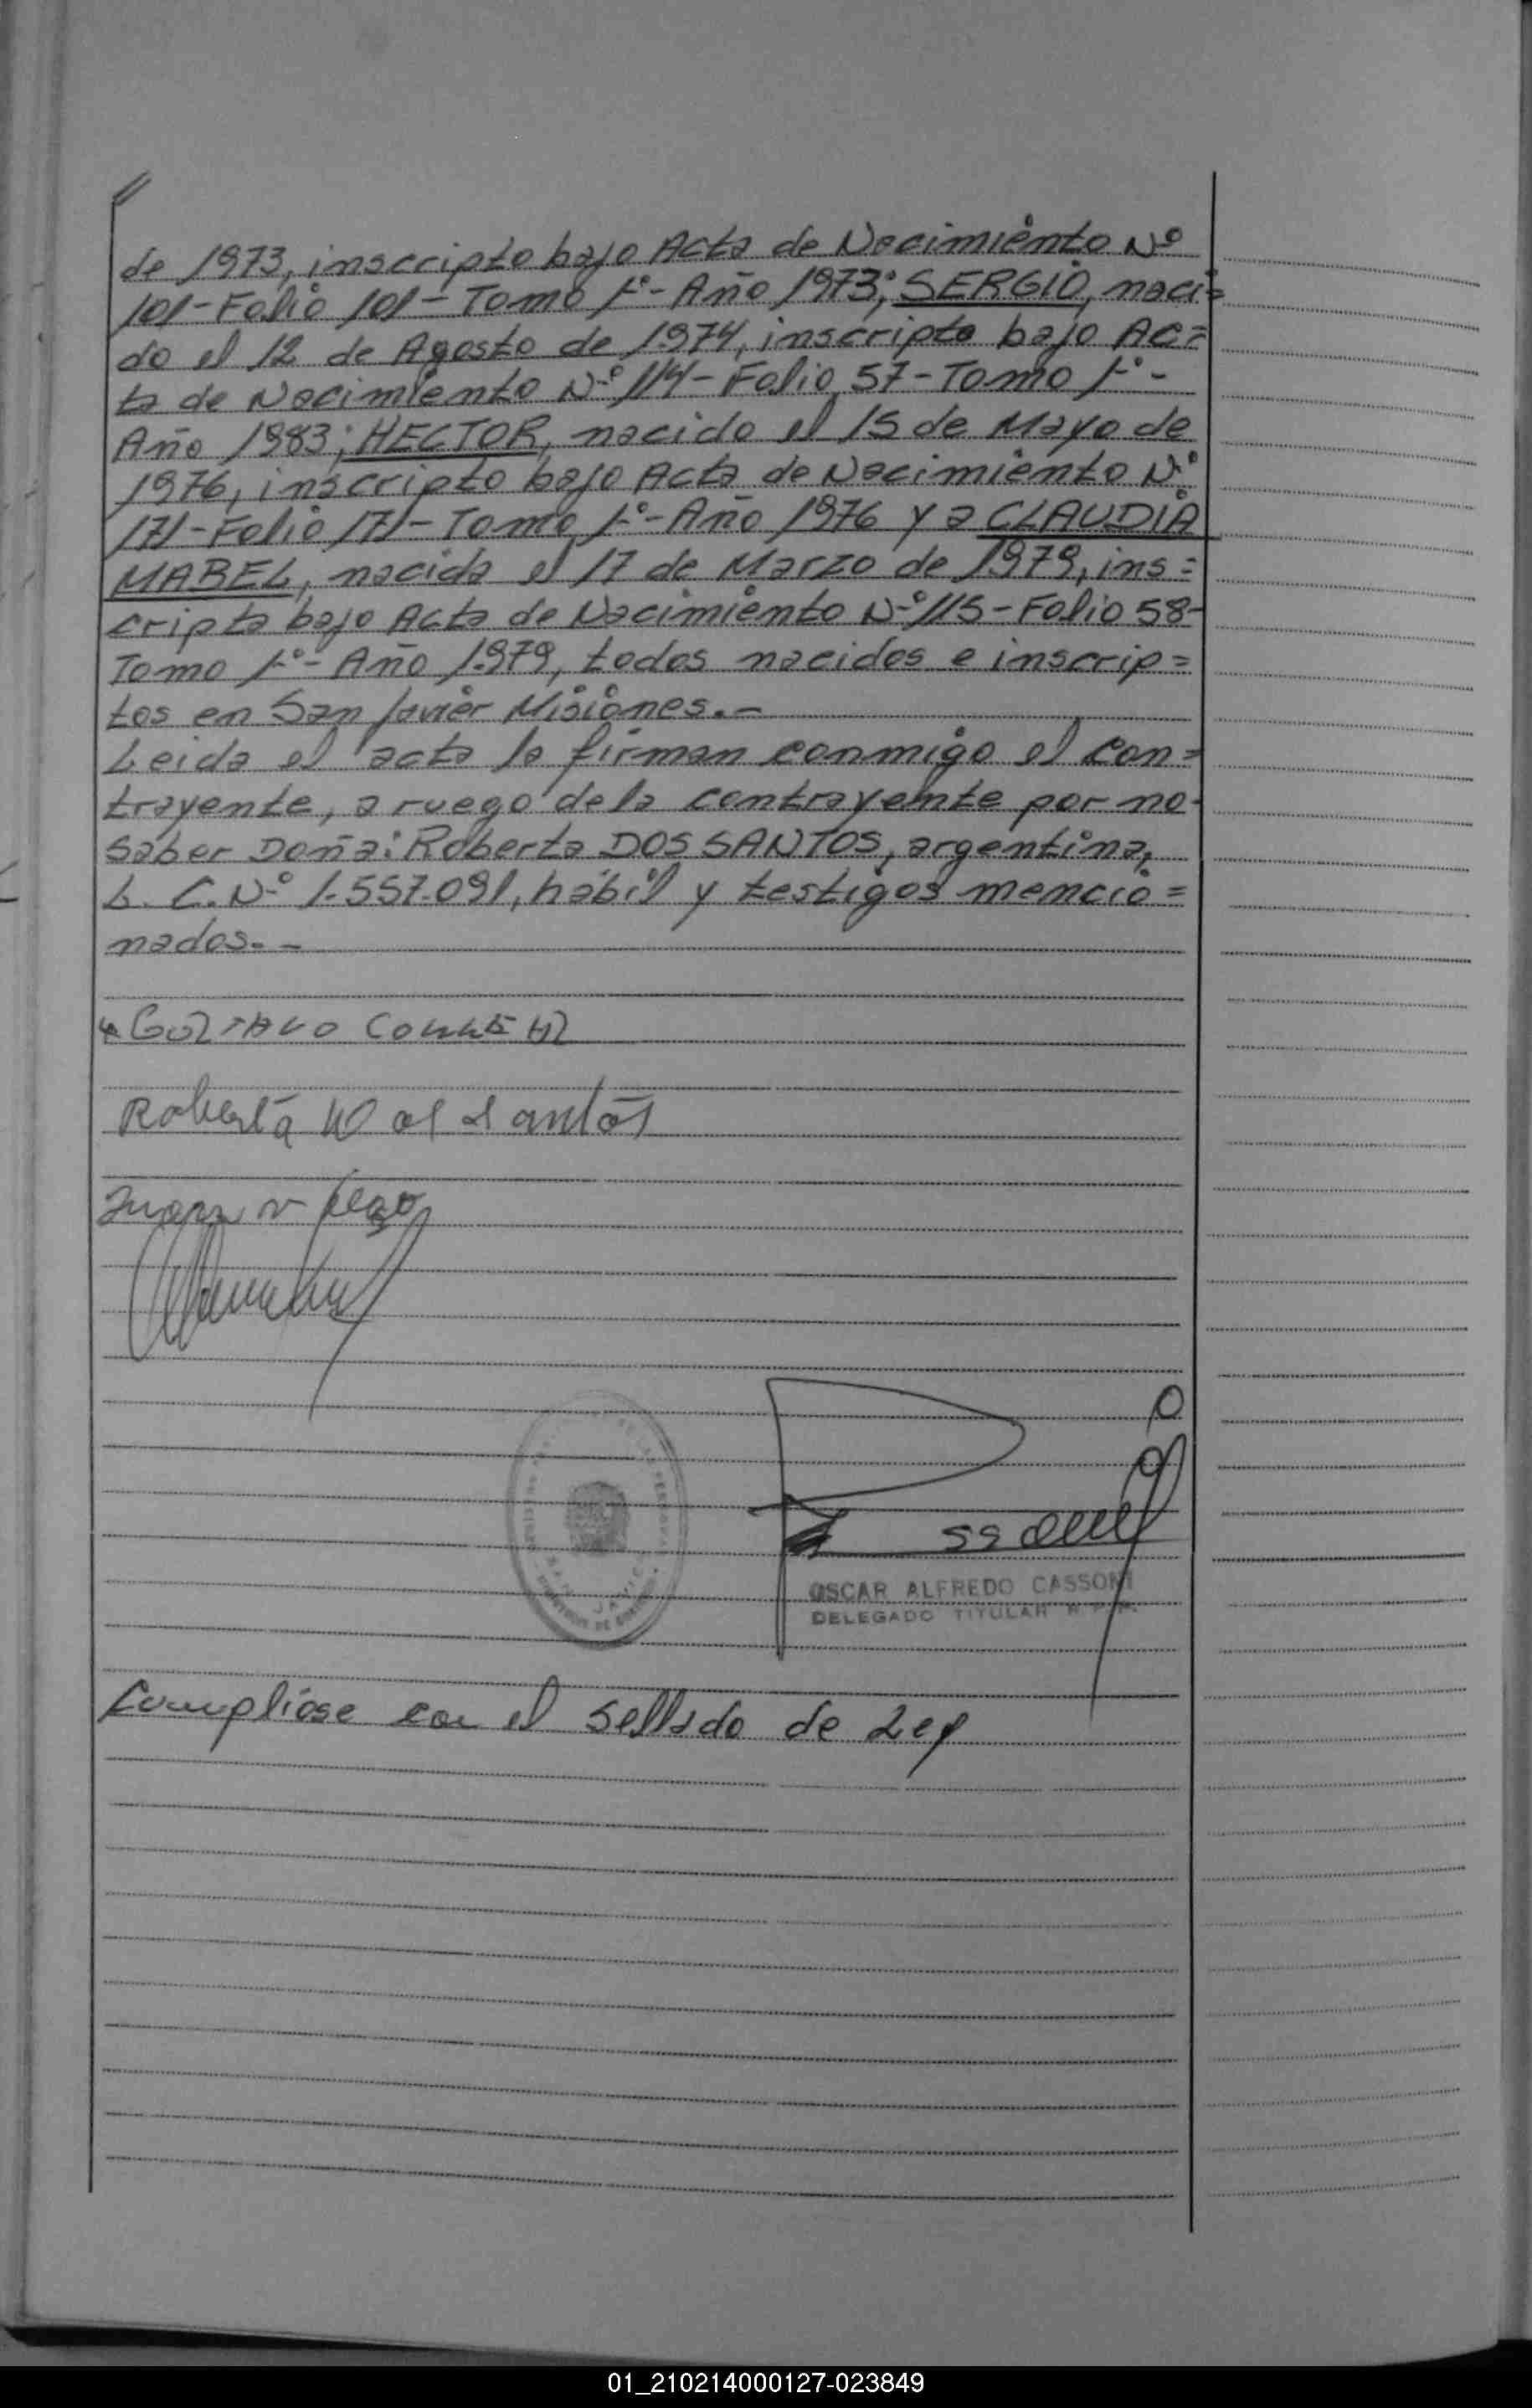 de 1973, inscripto bajo Acta de Nacimiento Nº
101-Folio 101-Tomo 1º-Año 1973; SERGIO, naci=
do el 12 de Agosto de 1.974, inscripto bajo Ac=
ta de Nacimiento Nº 114-Folio 57-Tomo 1º-
Año 1983; HECTOR, nacido el 15 de Mayo de
1976, inscripto bajo Acta de Nacimiento Nº
171-Folio 171-Tomo 1º-Año 1976 y a CLAUDIA
MABEL, nacida el 17 de Marzo de 1979, ins=
cripta bajo Acta de Nacimiento Nº 115-Folio 58-
Tomo 1º-Año 1.979, todos nacidos e inscrip=
tos en San Javier Misiones.-
Leida el acta la firman conmigo el con=
trayente, a ruego de la contrayente por no
saber Doña: Roberta DOS SANTOS, argentina,
L. C. Nº 1.557.091, hábil y testigos mencio=
nados.-
Roberta
Juan
OSCAR ALFREDO CASSONI
DELEGADO TITULAR
Cumpliose con el sellado de Ley
01_210214000127-023849